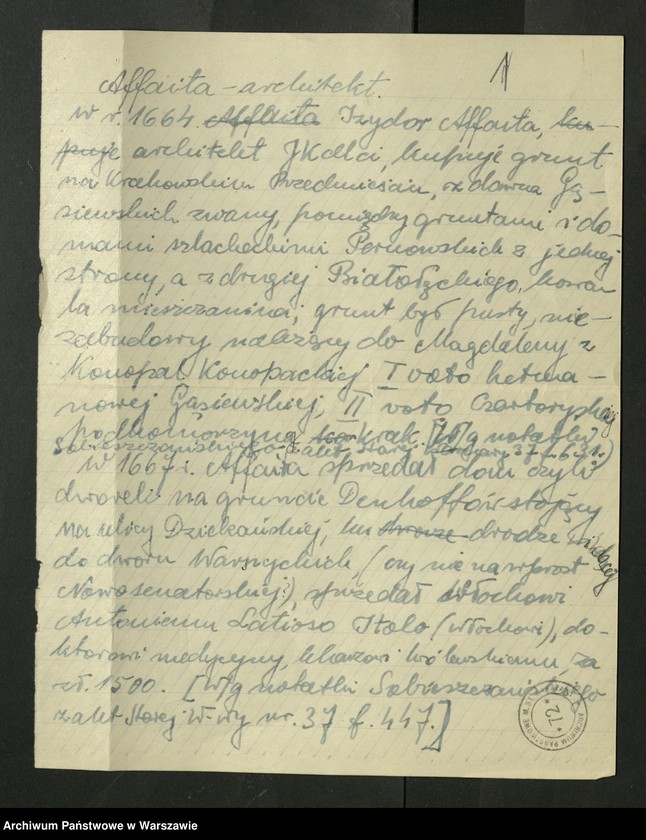 1
Affaita – architekt.
W r. 1664 Affaita Izydor Affaita, ku-
puje architekt JKMci, kupuje grunt
na Krakowskim Przedmieściu, z dawna Gą-
siewskich zwany, pomiędzy gruntami i do-
mami szlacheckimi Pernowskich z jednej
strony, a z drugiej Białołęckiego, kowa
la mieszczanina; grunt był pusty, nie-
zabudowy należący do Magdaleny z
Konopat Konopackiej I voto hetma-
nowej Gąsiewskiej, II voto Czartoryskiej
podkomorzyną krak. [W/g notatki
Sobieszczańskiego z akt Starej Warszawy 37 f. 631.]
W 1667 r. Affaita sprzedał dom czyli
dworek na gruncie Denhoffów stojący
na ulicy Dziekańskiej, ku drodze wiodącej
do dworu Warszyckich (czy nie na wprost
Nowosenatorskiej?), sprzedał Włochowi
Antoniemu Latioso Italo (Włochowi), do-
ktorowi medycyny, lekarzowi królewskiemu, za
zł. 1500. [W/g notatki Sobieszczańskiego
z akt Starej W-wy nr. 37 f. 447.]
ARCHIWUM PAŃSTWOWE W
*72*
Archiwum Państwowe w Warszawie